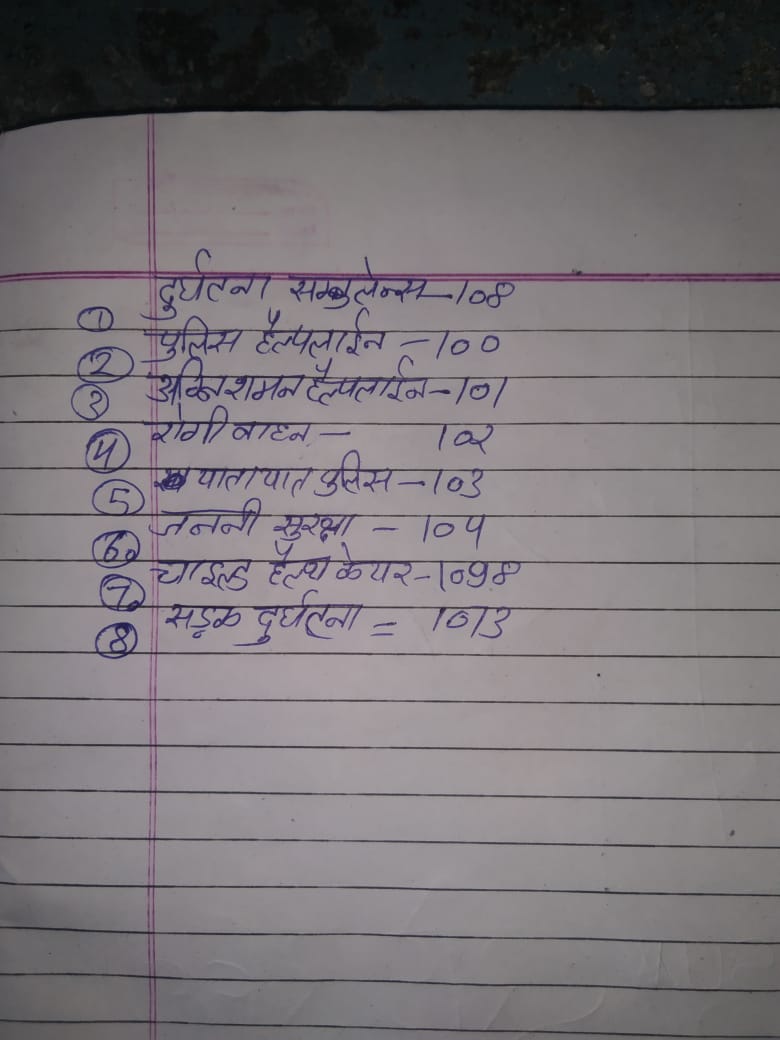 ① दुर्घटना सम्बुलेन्स - 108
② पुलिस हैल्पलाईन - 100
③ अग्निशमन हैल्पलाईन - 101
④ रोगी वाहन - 102
⑤ यातायात पुलिस - 103
⑥ जननी सुरक्षा - 104
⑦ चाइल्ड हैल्थ केयर - 1098
⑧ सड़क दुर्घटना = 1073